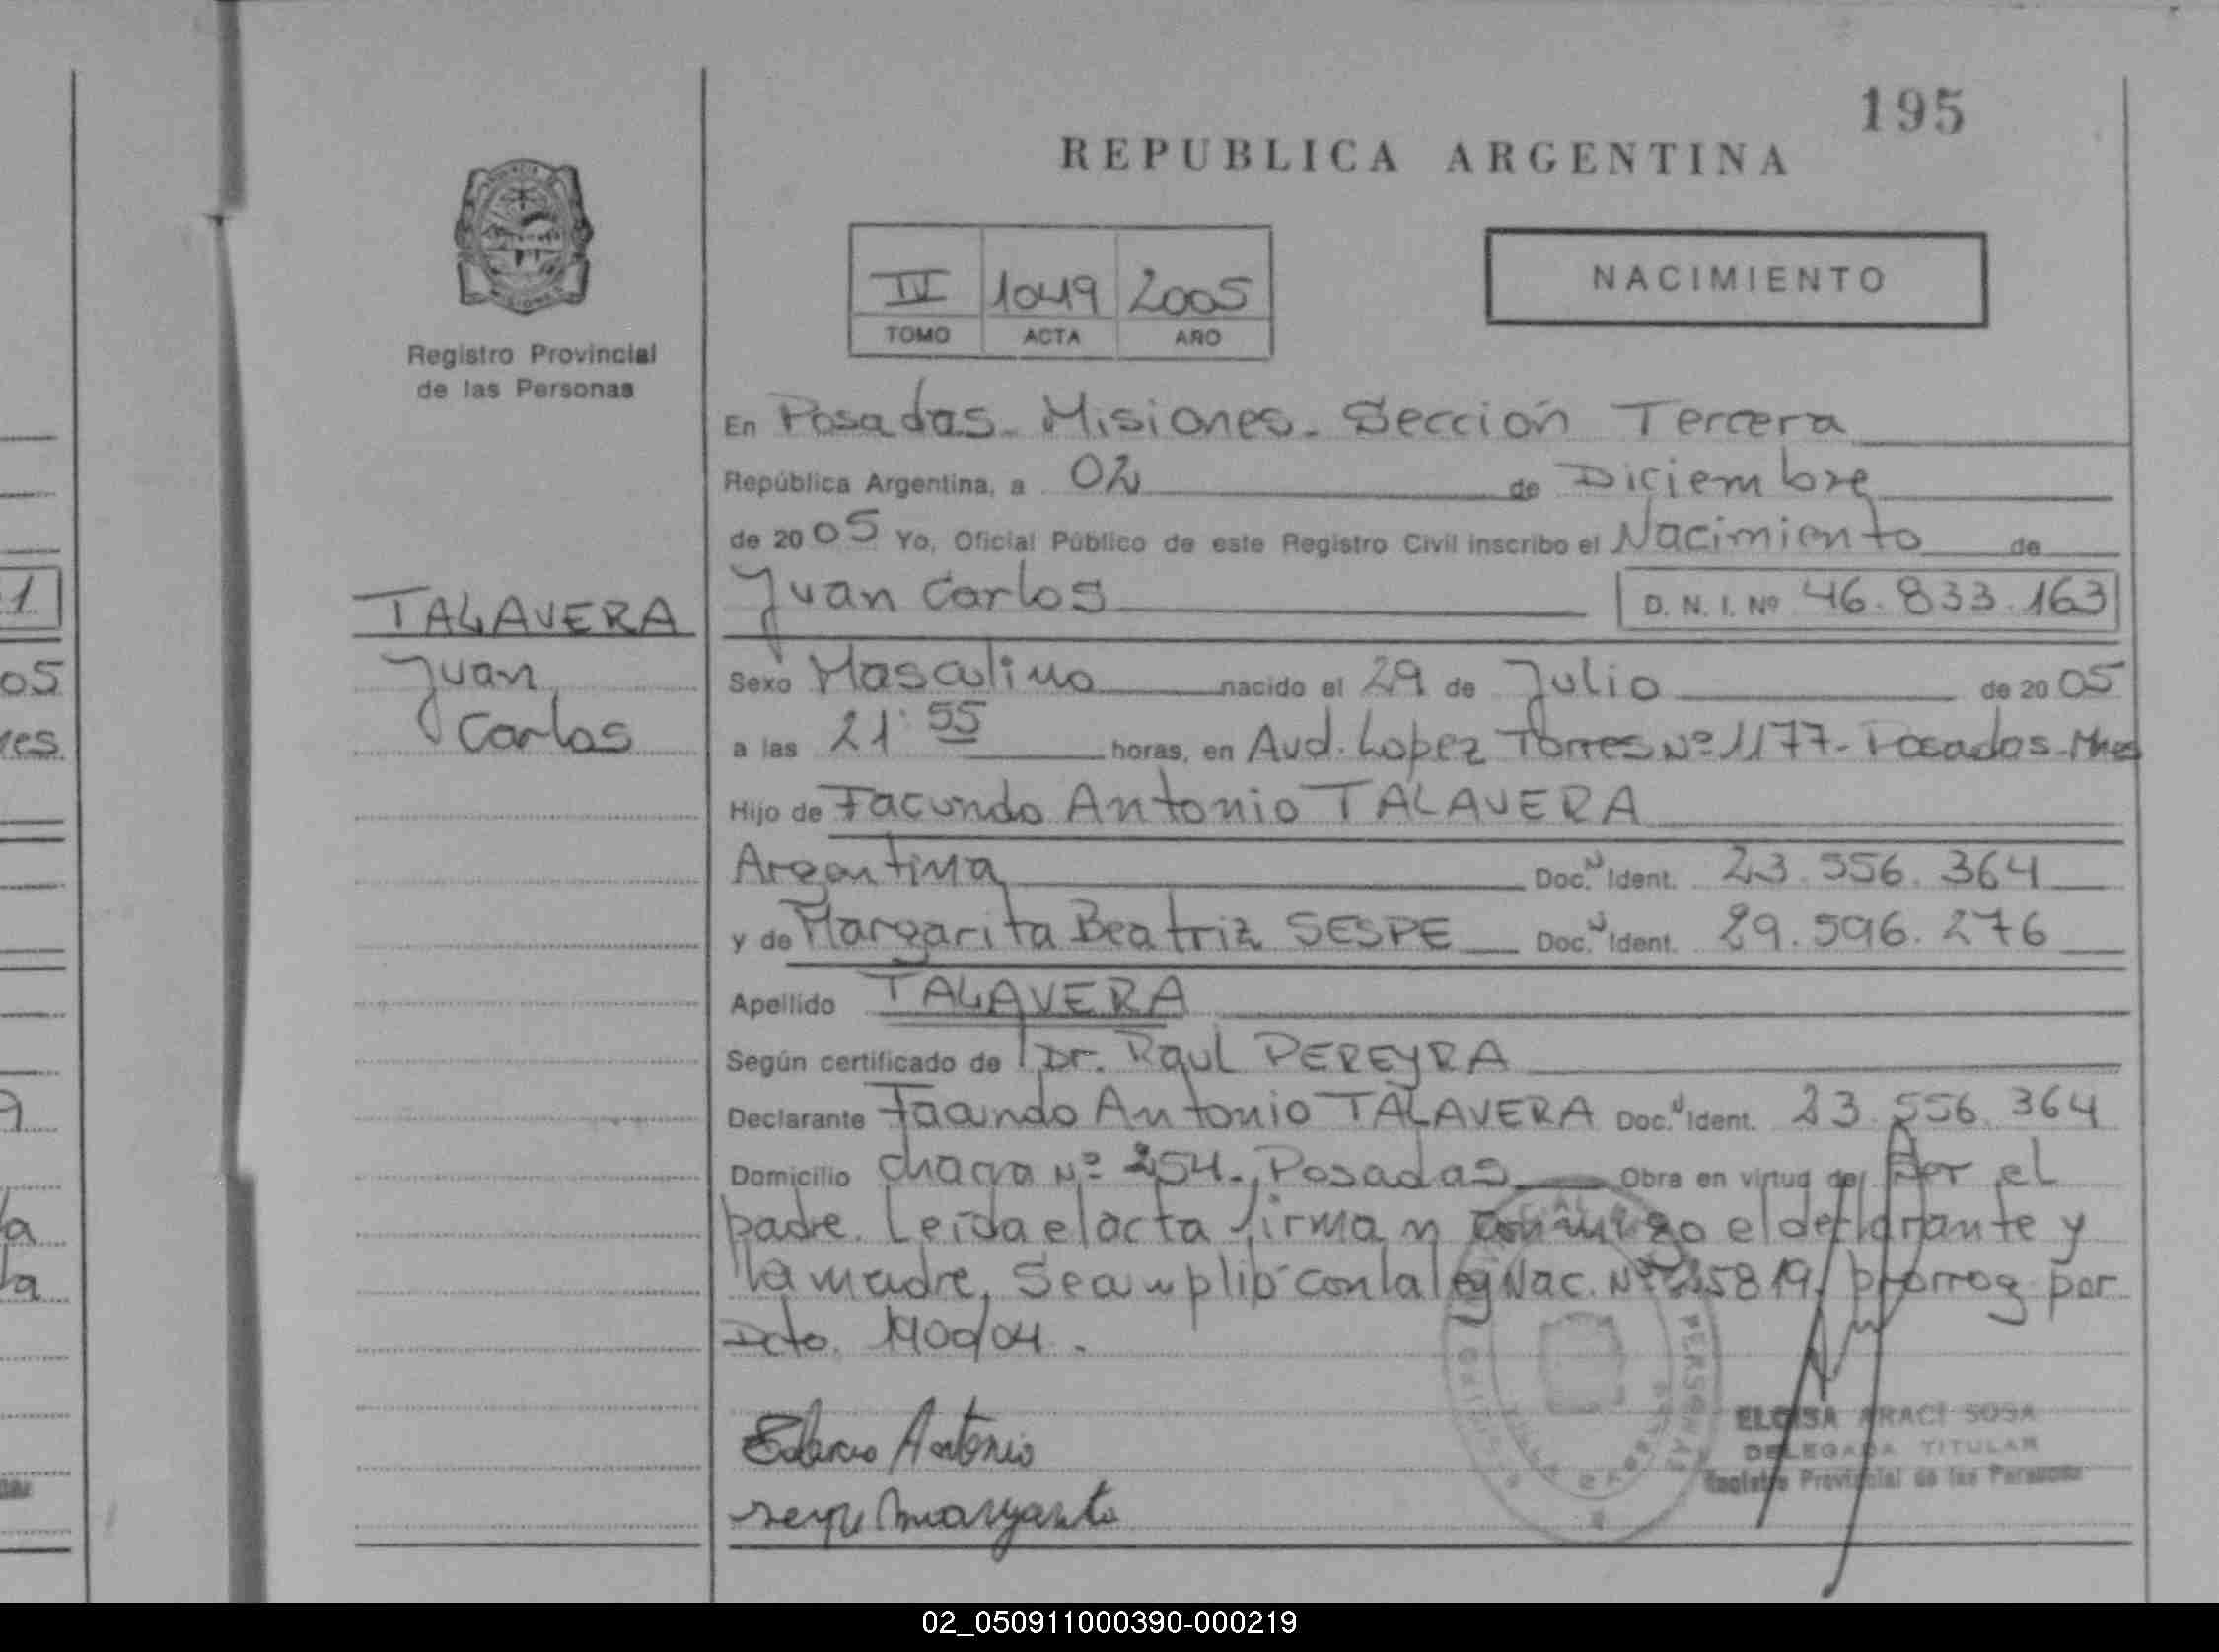 195
REPUBLICA ARGENTINA
NACIMIENTO
IV 1049 2005
TOMO ACTA AÑO
Registro Provincial
de las Personas
En Posadas - Misiones - Sección Tercera
República Argentina, a 02 de Diciembre
de 2005 Yo, Oficial Público de este Registro Civil inscribo el Nacimiento de
Juan Carlos D. N. I. Nº 46.833.163
TALAVERA
Juan
Carlos
Sexo Masculino nacido el 29 de Julio de 2005
a las 21:55 horas, en Avd. Lopez Torres Nº 1177 - Posadas - Mnes
Hijo de Facundo Antonio TALAVERA
Argentina Doc. Ident. 23.556.364
y de Margarita Beatriz SESPE Doc. Ident. 29.596.276
Apellido TALAVERA
Según certificado de Dr. Raul PEREYRA
Declarante Facundo Antonio TALAVERA Doc. Ident. 23.556.364
Domicilio chacra Nº 254. Posadas Obra en virtud de Por el
padre. Leida el acta firman conmigo el declarante y
la madre. Se cumplió con la ley Nac. Nº 25819, prorrog por
Dcto. 1900/04.
Antonio
ELOISA ARACI SOSA
DELEGADA TITULAR
Registro Provincial de las Personas
1
05
res
9
a
la
02_050911000390-000219